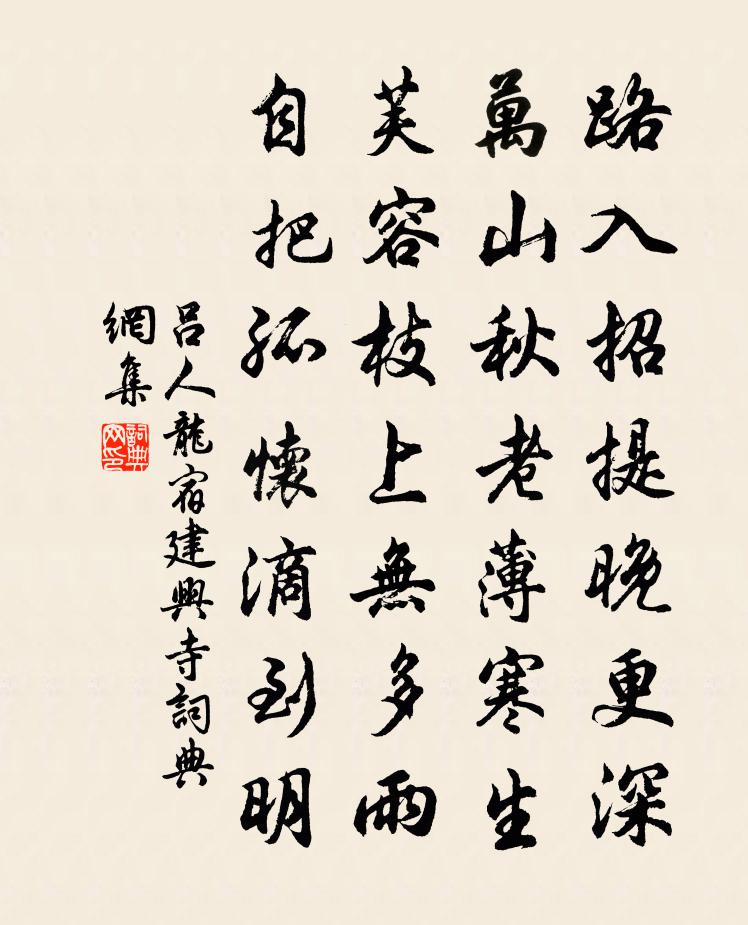 路入招提晚更深
萬山秋老薄寒生
芙容枝上無多雨
自把孤懷滴到明
呂人龍宿建興寺詞典
網集
詞典
网印